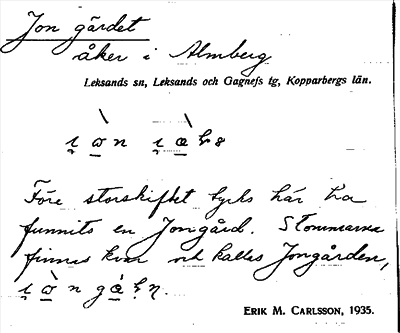 Jon gärdet
åker i Almberg
Leksands sn, Leksands och Gagnefs tg, Kopparbergs län.
Före storskiftet tycks här ha
funnits en Jongård. Stommarna
finnas kvar och kallas Jongården,
ERIK M. CARLSSON, 1935.